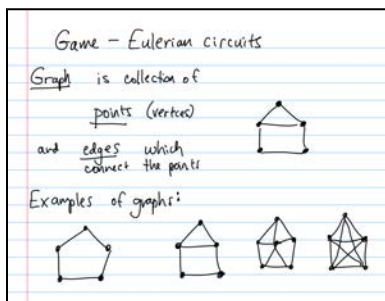 Game – Eulerian circuits
Graph is collection of
points (vertices)
and edges which
connect the points
Examples of graphs: